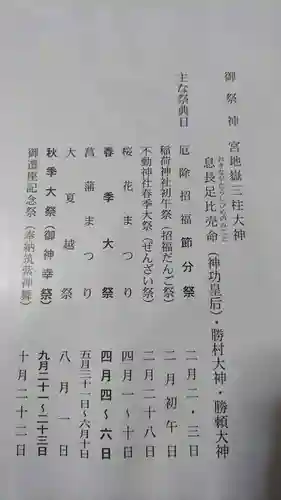 御祭神 宮地嶽三柱大神
おきながたらしひめのみこと
息長足比売命（神功皇后）・勝村大神・勝頼大神
主な祭典日
厄除招福節分祭 二月二・三日
稲荷神社初午祭（招福だんご祭） 二月初午日
不動神社春季大祭（ぜんざい祭） 二月二十八日
桜花まつり 四月一～十日
春季大祭 四月四～六日
菖蒲まつり 五月三十一日～六月十日
大夏越祭 八月一日
秋季大祭（御神幸祭） 九月二十一～二十三日
御遷座記念祭（奉納筑紫神舞） 十月二十二日